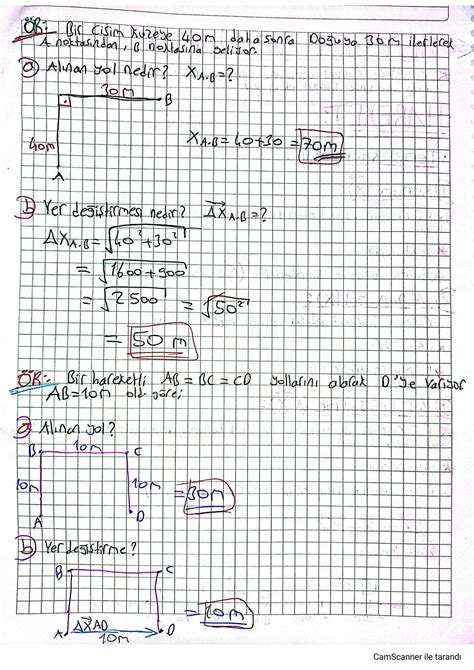 ÖR: Bir cisim kuzeye 40m daha sonra Doğuya 30m ilerlerek
A noktasından, B noktasına geliyor.
a) Alınan yol nedir? X A-B = ?
30m
B
40m
A
X A-B = 40+30 = 70m
b) Yer değiştirmesi nedir? ΔX A-B = ?
ΔX A-B = √40²+30²
= √1600+900
= √2500 = √50²
= 50 m
ÖR: Bir hareketli AB = BC = CD yollarını alarak D'ye varıyor
AB=10m old. göre;
a) Alınan yol?
B 10m C
10m 10m = 30m
A D
b) Yer değiştirme?
B C
ΔX AD = 10m
A 10m D
CamScanner ile tarandı